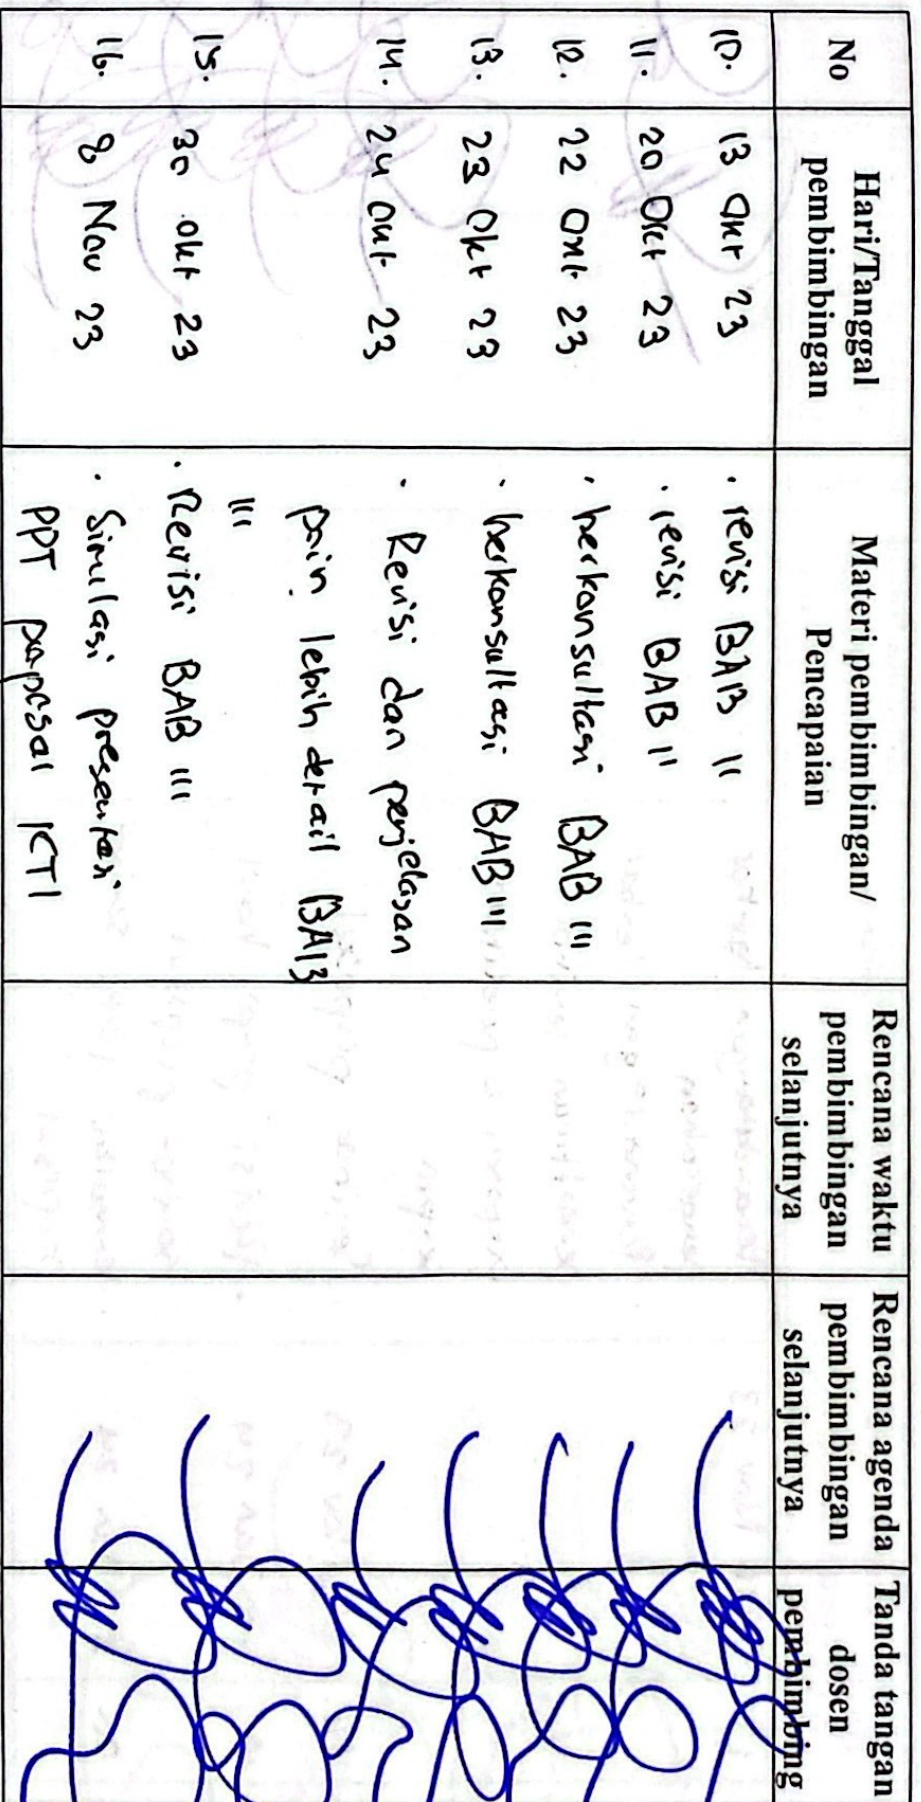 No
Hari/Tanggal
pembimbingan
Materi pembimbingan/
Pencapaian
Rencana waktu
pembimbingan
selanjutnya
Rencana agenda
pembimbingan
selanjutnya
Tanda tangan
dosen
pembimbing
10. 13 Okt 23 · revisi BAB II
11. 20 Okt 23 · revisi BAB II
12. 22 Okt 23 · berkonsultasi BAB III
13. 23 Okt 23 · berkonsultasi BAB III
14. 24 Okt 23 · Revisi dan penjelasan
poin lebih detail BAB
III
15. 30 Okt 23 · Revisi BAB III
16. 8 Nov 23 · Simulasi presentasi
PPT proposal KTI